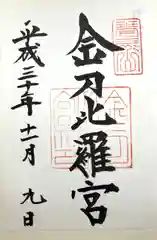 金刀比羅宮
平成三十年十一月九日